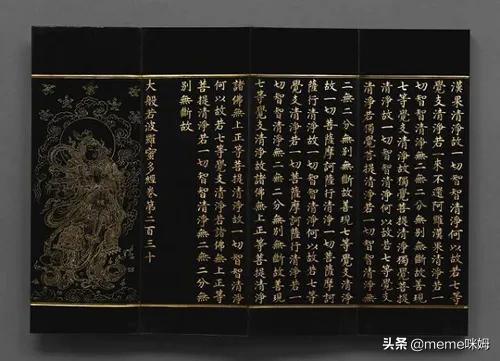 漢果清淨故一切智智清淨何以故若七等
覺支清淨若一來不還阿羅漢果清淨若一
切智智清淨無二無二分無別無斷故善現
七等覺支清淨故獨覺菩提清淨獨覺菩提
清淨故一切智智清淨何以故若七等覺支
清淨若獨覺菩提清淨若一切智智清淨無
二無二分無別無斷故善現七等覺支清淨
故一切菩薩摩訶薩行清淨一切菩薩摩訶
薩行清淨故一切智智清淨何以故若七等
覺支清淨若一切菩薩摩訶薩行清淨若一
切智智清淨無二無二分無別無斷故善現
七等覺支清淨故諸佛無上正等菩提清淨
諸佛無上正等菩提清淨故一切智智清淨
何以故若七等覺支清淨若諸佛無上正等
菩提清淨若一切智智清淨無二無二分無
別無斷故
大般若波羅蜜多經卷第二百三十
头条 @meme咪姆